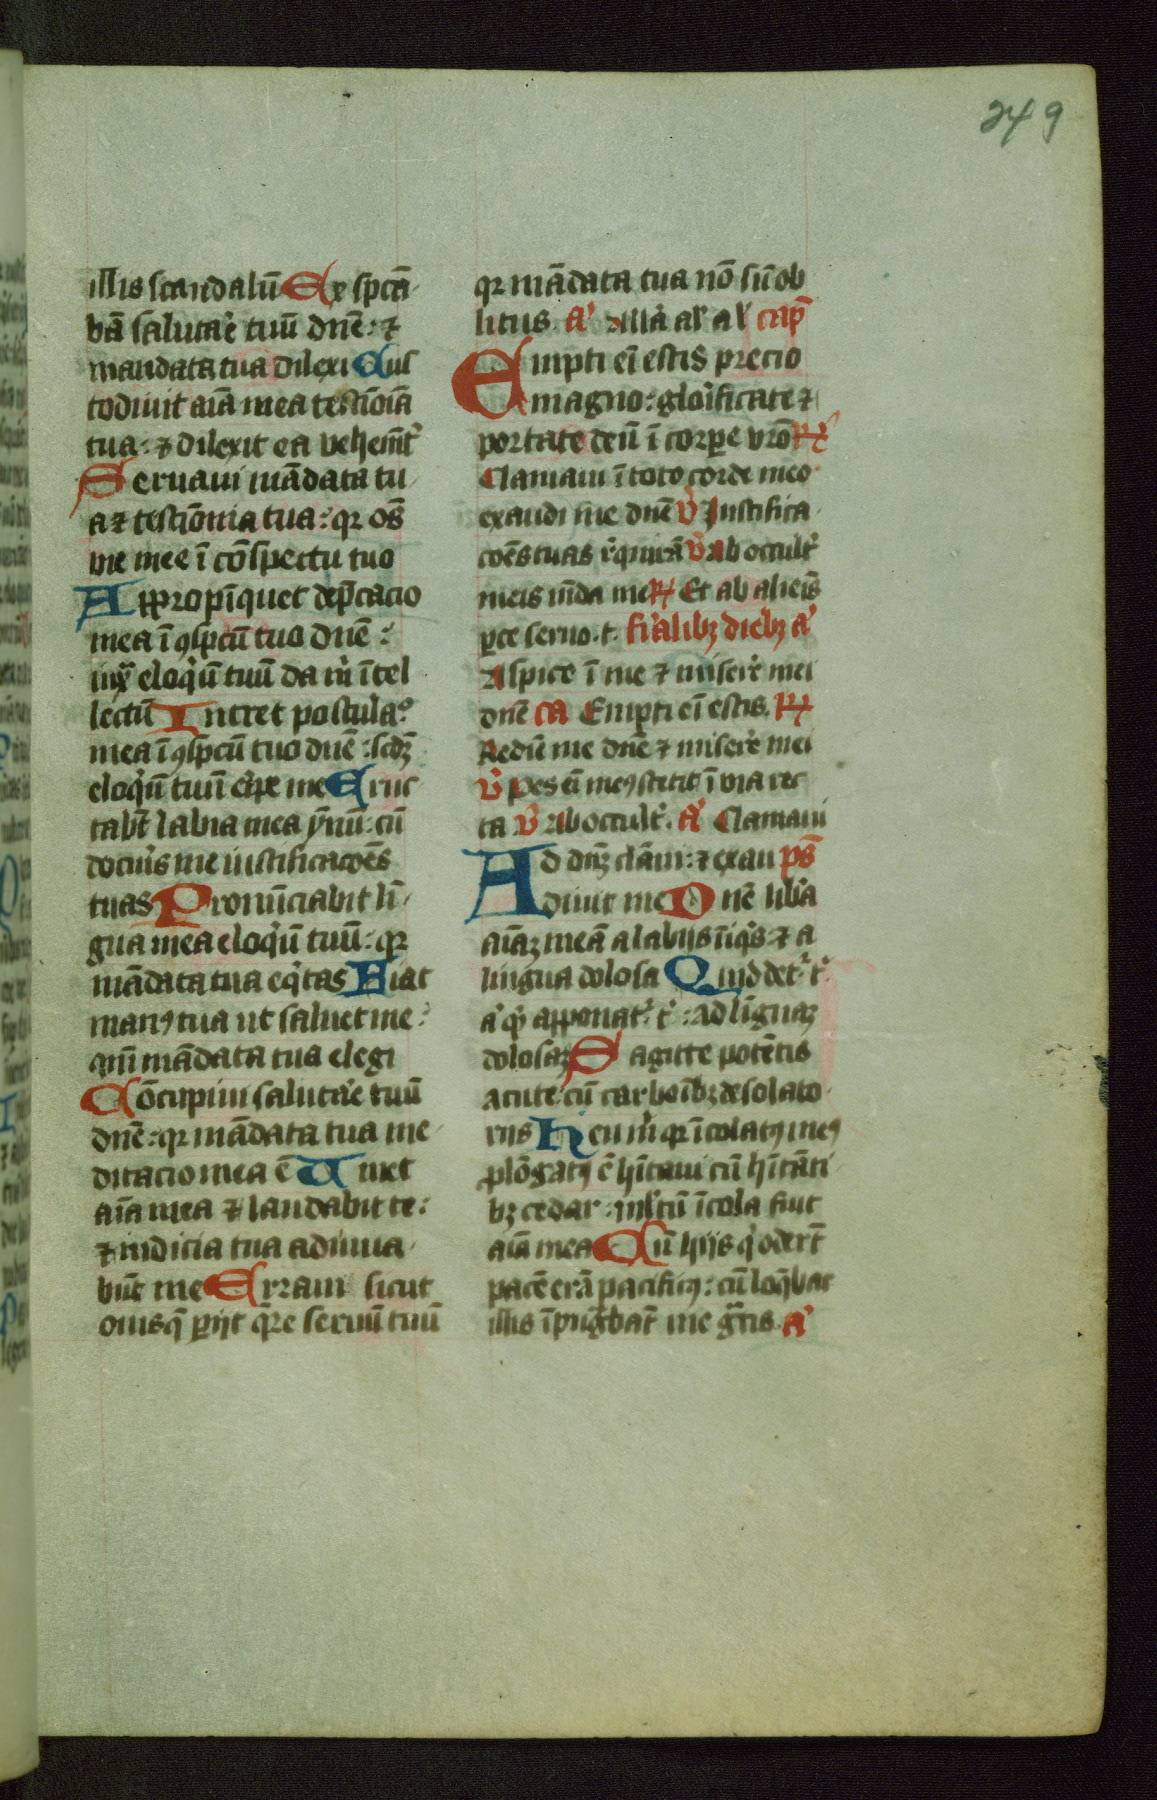 249
illis scandalū Ex spctā
bā salutar̄e tuū dnē : ⁊
mandata tua dilexi Cus
todiuit aīā mea testīoīā
tua : ⁊ dilexit ea vehemēt̄
Seruaui mādata tu
a ⁊ testiōnia tua : qr os̄
me mee ī cōspectu tuo
Appropīquet dep̄cacio
mea ī ꝯspc̄tū tuo dnē :
iux̄ eloq̄ū tuū da m̄ ītel
lectū Intret postula°
mea ī ꝯspc̄tū tuo dnē : scdȝ
eloq̄ū tuū er̄ipe me Eruc
tabt̄ labia mea ẏnū : cū
docuīs me iustificacōēs
tuas Pronūciabit lī
gua mea eloq̄ū tuū : qr
mādata tua eq̄tas Fiat
manꝰ tua ut saluet me :
qm̄ mādata tua elegi
Cōcupiui salutar̄e tuū
dnē : qr mādata tua me
ditacio mea ē Viuet
aīa mea ⁊ laudabit te :
⁊ iudicia tua adiuua
būt me Erraui sicut
ouis q̄ ꝑijt q̄re seruū tuū
qr mādata tua nō sū ob
litus a͛ Alla͛ al͛ al͛ cap̄
Empti eī estis precio
magno : glor̄ificate ⁊
portate deū ī corꝑe vrō R͛
Clamaui ī toto corde meo
exaudi me dnē v͛ Justifica
cōēs tuas r̄quirā v͛ Ab occult͛
meis mūda me R͛ Et ab alieīs
ꝑce seruo . t . fīalibȝ diebȝ a͛
Aspice ī me ⁊ miser̄e mei
dnē ca Empti eī estis . R͛
Redīe me dnē ⁊ miser̄e mei
v͛ Pes eī meꝰ stetit ī via rec
ta v͛ Ab occult͛ . a͛ Clamaui
Ad dnȝ clām : ⁊ exau ps̄
Adiuit me Dnē libͣa
aīaȝ meā a labijs īiq͛s ⁊ a
lingua dolosa Quid det͛ t͛
a͛ q͛ apponat͛ t͛ : ad līguaȝ
dolosaȝ Sagitte potētis
acute : cū carboībȝ desolato
rijs Heu m͛ qr īcolatꝰ meꝰ
ꝓlōgatꝰ ē hītaui cū hītāti
bȝ cedar : mltū īcola fuit
aīa mea Cū hijs q͛ oder̄t
pacē erā pacificꝰ : cū loq̄bar
illis īpuḡbāt me gͣtis . a͛